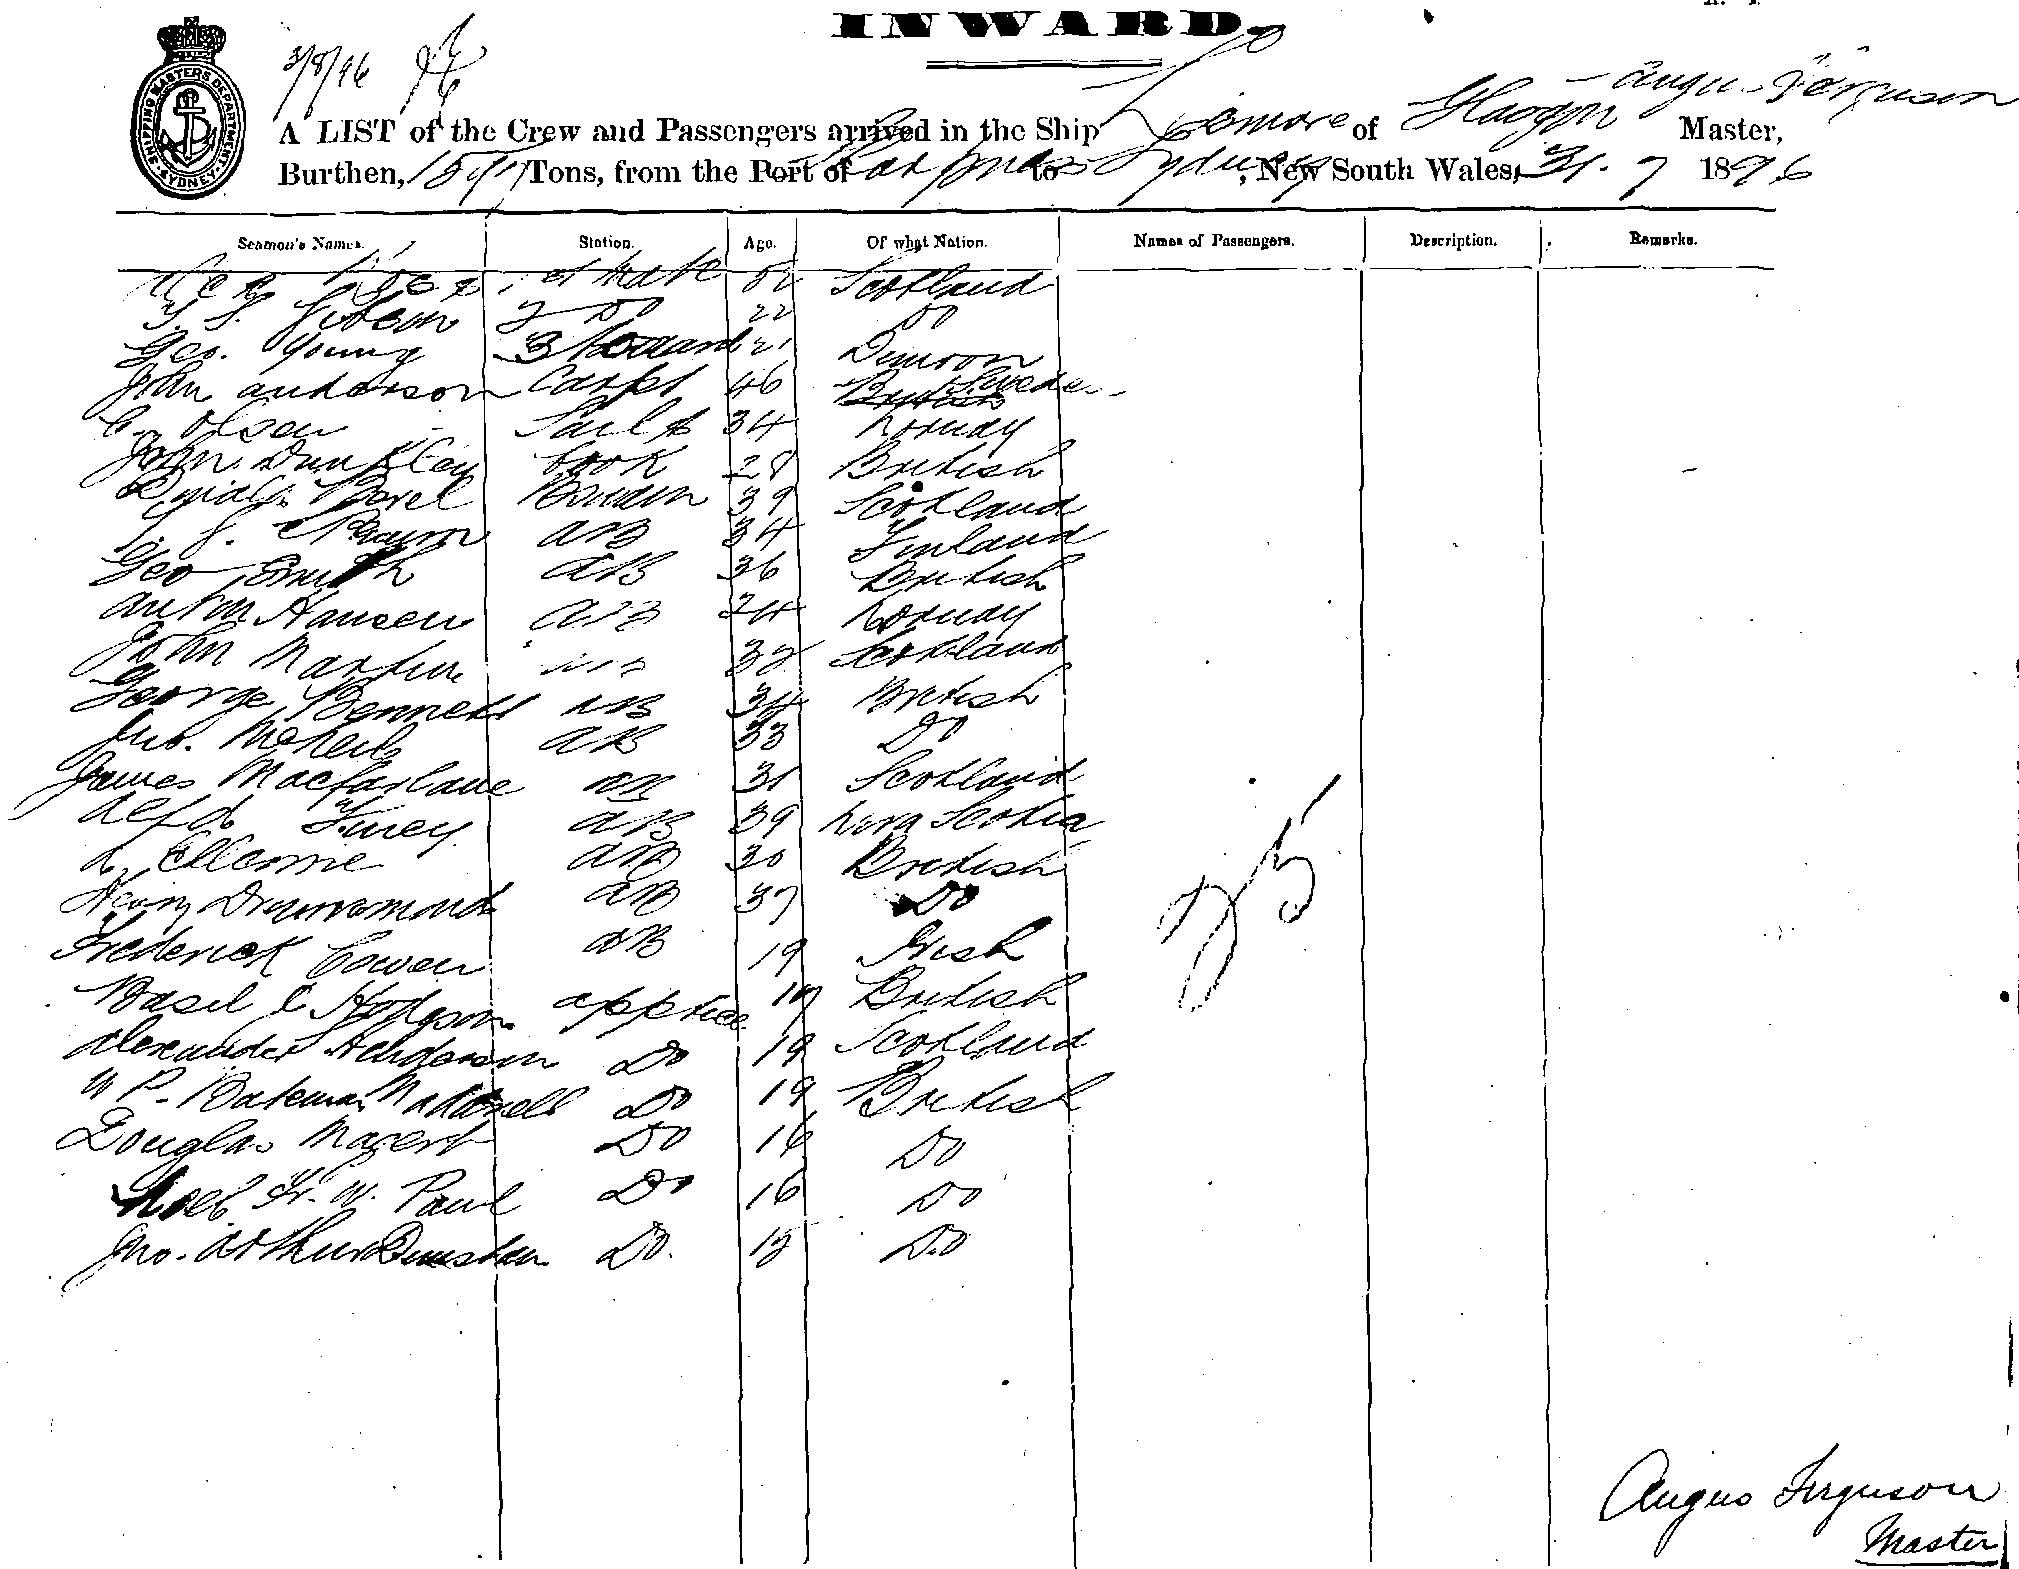 INWARD.
3/8/96
A LIST of the Crew and Passengers arrived in the Ship Lismore of Glasgow Angus Ferguson Master,
Burthen, Tons, from the Port of to Sydney, New South Wales, 31. 7 1896
SHIPPING MASTERS DEPARTMENT SYDNEY
Seamen's Names. Station. Age. Of what Nation. Names of Passengers. Description. Remarks.
Mate 52 Scotland
Gibson 2 Do 22 Do
Geo. Young 3 21 Dunoon
John Anderson Carpt 46 British Swede
C. Olsen Sailmr 34 Norway
John Dunkley Cook 28 British
39 Scotland
AB 34 Finland
Geo Smith AB 36 British
Anton Hansen AB 24 Norway
John Martin AB 32 Scotland
George Bennett AB 34 British
Jno. McNeil AB 33 Do
James Macfarlane AB 31 Scotland
Alfd Furey AB 39 Nova Scotia
AB 30 British
Henry Drummond AB 37 Do
Frederick Cowen AB 19 Irish
Basil C Hodgson apptice British
Alexander Henderson Do 19 Scotland
W P. Bateman Do 19 British
Douglas Do 16 Do
Noel Fr. W. Paul Do 16 Do
Jno. Arthur Dunstan Do. Do
25
Angus Ferguson
Master